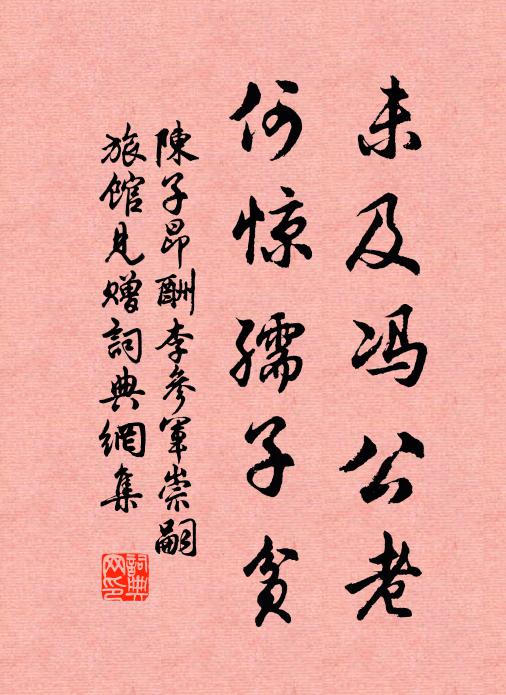 未及冯公老
何惊孺子贫
陳子昂酬李參軍崇嗣
旅館見贈詞典網集
詞典
网印